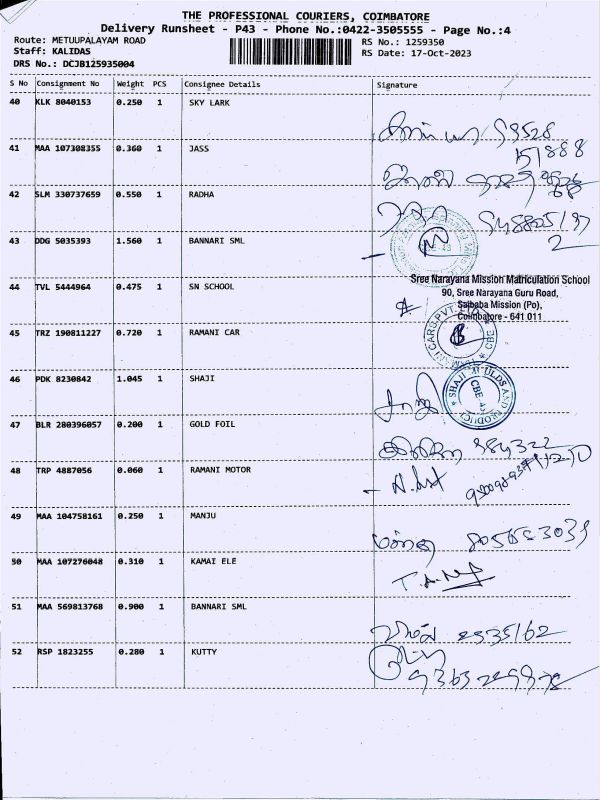 THE PROFESSIONAL COURIERS, COIMBATORE
Delivery Runsheet - P43 - Phone No.:0422-3505555 - Page No.:4
Route: METUUPALAYAM ROAD
RS No.: 1259350
Staff: KALIDAS
RS Date: 17-Oct-2023
DRS No.: DCJB125935004
S No Consignment No Weight PCS Consignee Details Signature
40 KLK 8040153 0.250 1 SKY LARK
41 MAA 107308355 0.360 1 JASS
42 SLM 330737659 0.550 1 RADHA
43 DDG 5035393 1.560 1 BANNARI SML
44 TVL 5444964 0.475 1 SN SCHOOL
Sree Narayana Mission Matriculation School
90, Sree Narayana Guru Road,
Saibaba Mission (Po),
Coimbatore - 641 011
45 TRZ 190811227 0.720 1 RAMANI CAR
46 PDK 8230842 1.045 1 SHAJI
47 BLR 280396057 0.200 1 GOLD FOIL
48 TRP 4887056 0.060 1 RAMANI MOTOR
49 MAA 104758161 0.250 1 MANJU
50 MAA 107276048 0.310 1 KAMAI ELE
51 MAA 569813768 0.900 1 BANNARI SML
52 RSP 1823255 0.280 1 KUTTY